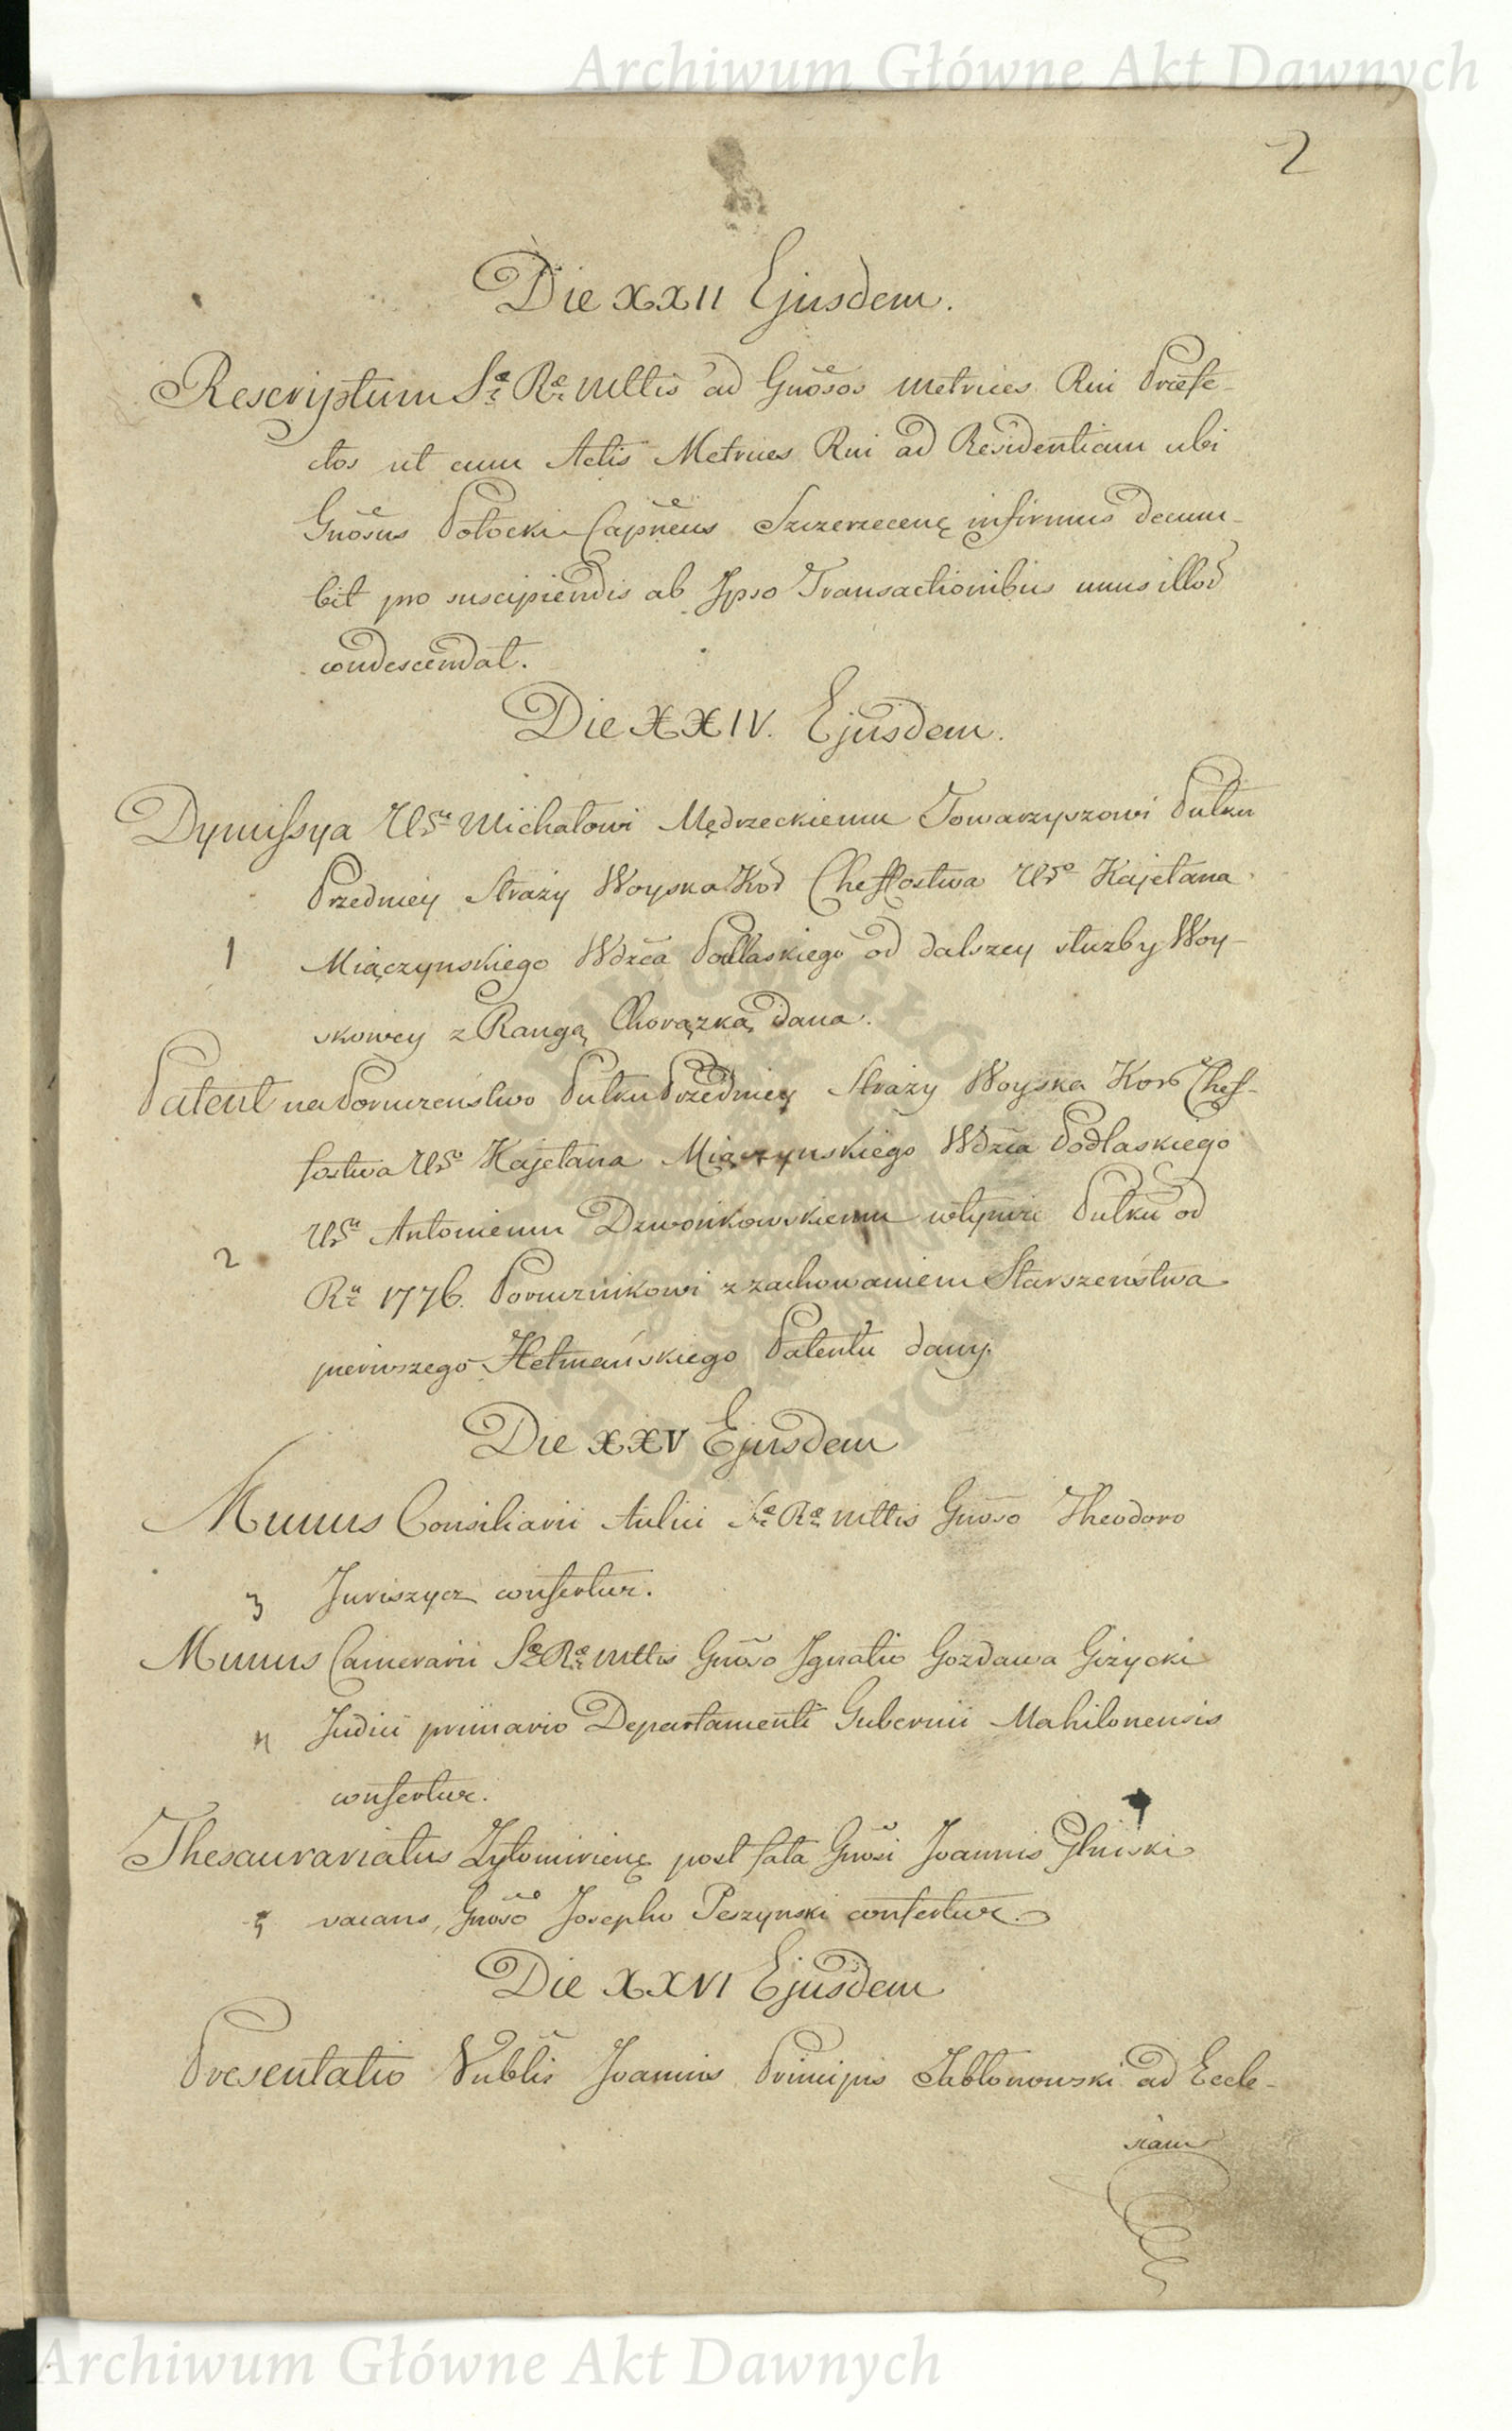 Archiwum Główne Akt Dawnych
2
Die XXII Ejusdem.
Rescriptum Sæ Ræ Mttis ad Gnosos Metrices Rni Præfe-
ctos ut cum Actis Metrices Rni ad Residentiam ubi
Gnosus Potocki Capneus Szczerzecen. infirmus decum-
bit pro suscipiendis ab Ipso Transactionibus unus illod
condescendat.
Die XXIV. Ejusdem.
Dymissya Ur. Michałowi Mędrzeckiemu Towarzyszowi Pułku
Przedniey Straży Woyska Kor Cheffostwa Ur. Kajetana
1 Miączynskiego Wdzca Podlaskiego od dalszey służby Woy-
skowey z Rangą Chorązką dana.
Patent na Porucznistwo Pułku Przedniey Straży Woyska Kor Chef-
fostwa Ur. Kajetana Miączynskiego Wdzca Podlaskiego
Ur. Antoniemu Dzwonkowskiemu wtymże Pułku od
2 Ru 1776. Porucznikowi z zachowaniem Starszeństwa
pierwszego Hetmańskiego Patentu dany.
Die XXV Ejusdem
Munus Consiliarii Aulici Sæ Ræ Mttis Gnoso Theodoro
3 Juriszycz confertur.
Munus Camerarii Sæ Ræ Mttis Gnoso Ignatio Gozdawa Giżycki
4 Judici primario Departamenti Gubernii Mahiloviensis
confertur.
Thesaurariatus Zytomirien. post fata Gnosi Joannis Gliński
5 vacans, Gnoso Josepho Peszynski confertur.
Die XXVI Ejusdem
Presentatio Nublis Joannis Principis Jabłonowski ad Eccle-
siam
Archiwum Główne Akt Dawnych